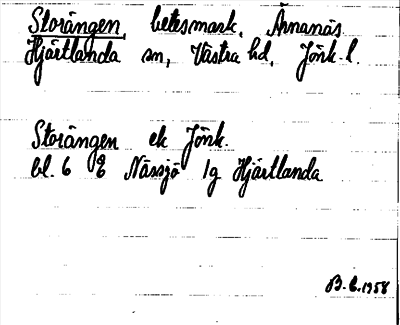 Storängen, betesmark, Ärnanäs
Hjärtlanda sn, Västra hd, Jönk. l.
Storängen ek Jönk.
bl. 6 Nässjö 1g Hjärtlanda
B. E. 1958